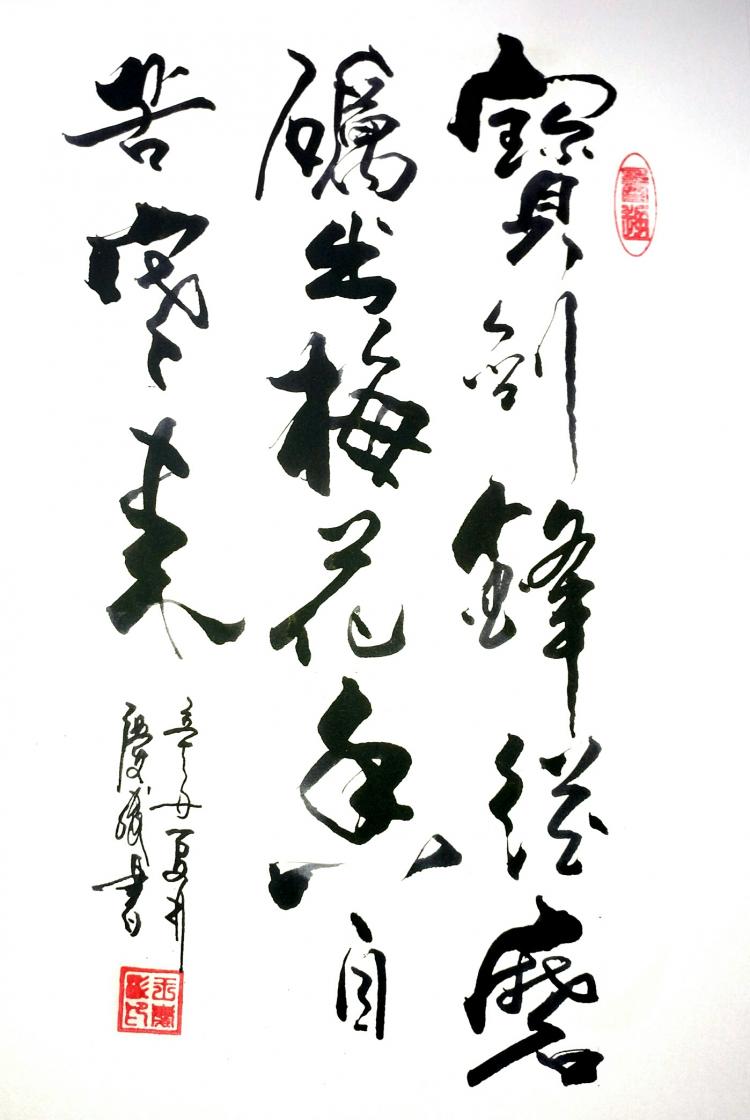 寶劍鋒從磨
礪出梅花香自
苦寒来
辛丑夏月
慶成書